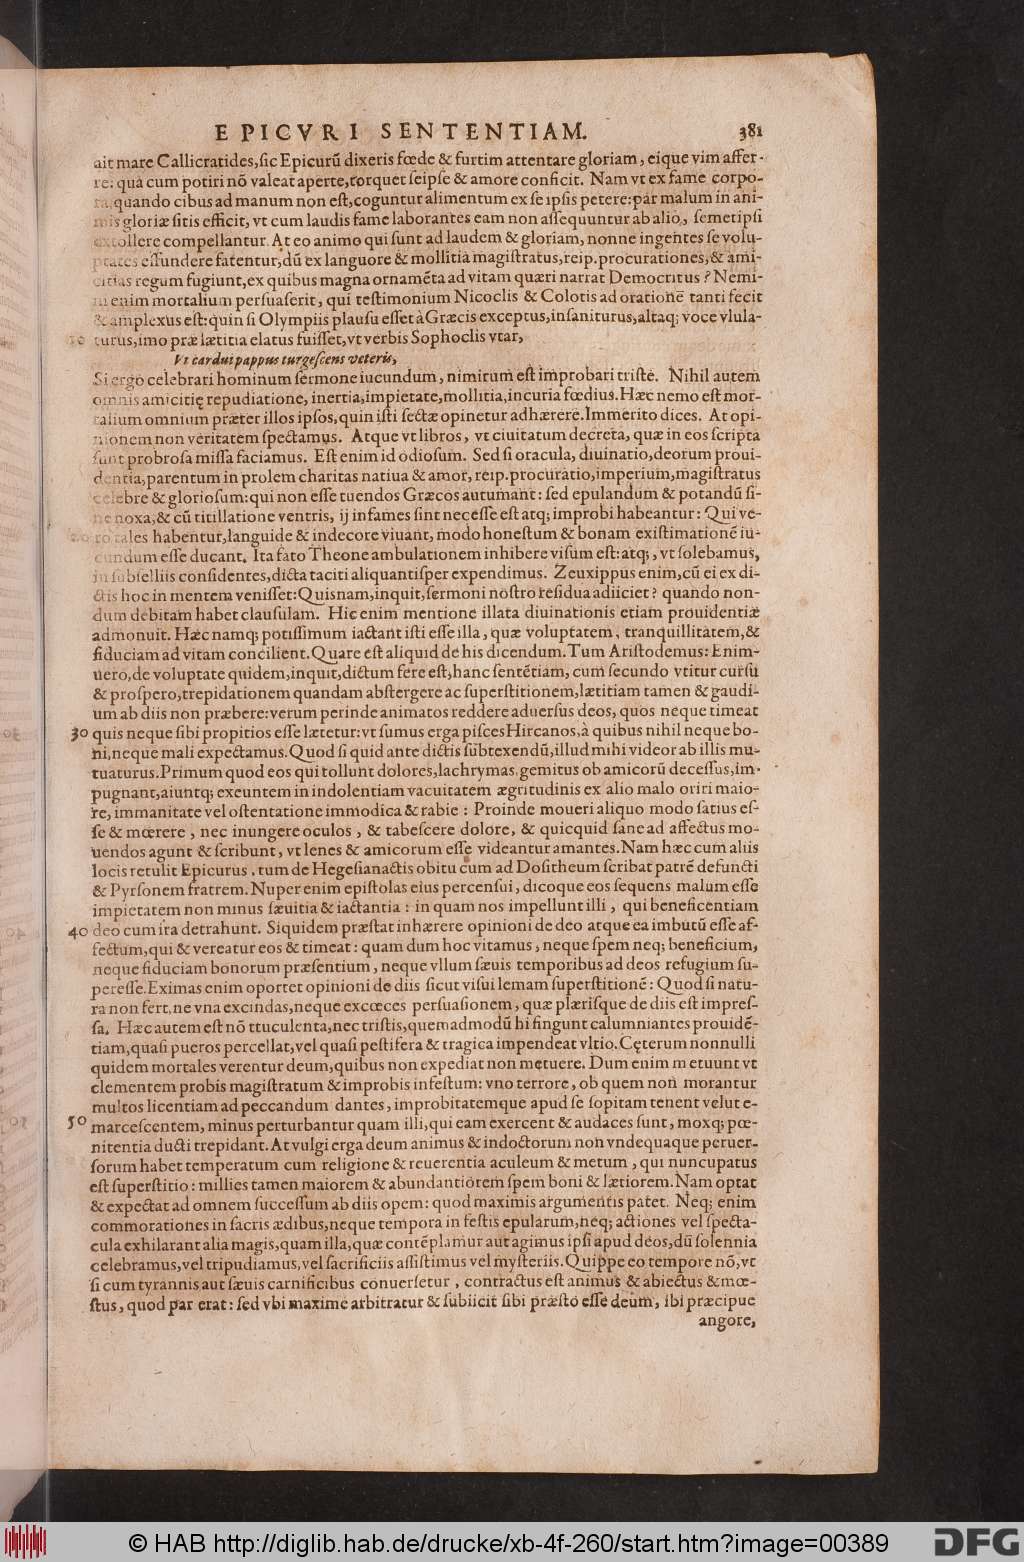 EPICVRI SENTENTIAM. 381
ait mare Callicratides, sic Epicurũ dixeris fœde & furtim attentare gloriam, eique vim affer-
re: qua cum potiri nõ valeat aperte, torquet seipse & amore conficit. Nam vt ex fame corpo-
ra, quando cibus ad manum non est, coguntur alimentum ex se ipsis petere: par malum in ani-
mis gloriæ sitis efficit, vt cum laudis fame laborantes eam non assequuntur ab alio, semetipsi
extollere compellantur. At eo animo qui sunt ad laudem & gloriam, nonne ingentes se volu-
ptates effundere fatentur, dũ ex languore & mollitia magistratus, reip. procurationes, & ami-
citias regum fugiunt, ex quibus magna ornamẽta ad vitam quæri narrat Democritus? Nemi-
ni enim mortalium persuaserit, qui testimonium Nicoclis & Colotis ad orationẽ tanti fecit
& amplexus est: quin si Olympiis plausu esset à Græcis exceptus, insaniturus, altaq; voce vlula-
10 turus, imo præ lætitia elatus fuisset, vt verbis Sophoclis vtar,
Vt cardui pappus turgescens veteris,
Si ergo celebrari hominum sermone iucundum, nimirum est improbari triste. Nihil autem
omnis amicitię repudiatione, inertia, impietate, mollitia, incuria fœdius. Hæc nemo est mor-
talium omnium præter illos ipsos, quin isti sectæ opinetur adhærere. Immerito dices. At opi-
nionem non veritatem spectamus. Atque vt libros, vt ciuitatum decreta, quæ in eos scripta
sunt probrosa missa faciamus. Est enim id odiosum. Sed si oracula, diuinatio, deorum proui-
dentia, parentum in prolem charitas natiua & amor, reip. procuratio, imperium, magistratus
celebre & gloriosum: qui non esse tuendos Græcos autumant: sed epulandum & potandũ si-
ne noxa, & cũ titillatione ventris, ij infames sint necesse est atq; improbi habeantur: Qui ve-
20 ro tales habentur, languide & indecore viuant, modo honestum & bonam existimationẽ iu-
cundum esse ducant. Ita fato Theone ambulationem inhibere visum est: atq;, vt solebamus,
in subselliis considentes, dicta taciti aliquantisper expendimus. Zeuxippus enim, cũ ei ex di-
ctis hoc in mentem venisset: Quisnam, inquit, sermoni nostro residua adiiciet? quando non-
dum debitam habet clausulam. Hic enim mentione illata diuinationis etiam prouidentiæ
admonuit. Hæc namq; potissimum iactant isti esse illa, quæ voluptatem, tranquillitatem, &
fiduciam ad vitam concilient. Quare est aliquid de his dicendum. Tum Aristodemus: Enim-
uero, de voluptate quidem, inquit, dictum fere est, hanc sentẽtiam, cum secundo vtitur cursu
& prospero, trepidationem quandam abstergere ac superstitionem, lætitiam tamen & gaudi-
um ab diis non præbere: verum perinde animatos reddere aduersus deos, quos neque timeat
30 quis neque sibi propitios esse lætetur: vt sumus erga pisces Hircanos, à quibus nihil neque bo-
ni, neque mali expectamus. Quod si quid ante dictis subtexendũ, illud mihi videor ab illis mu-
tuaturus. Primum quod eos qui tollunt dolores, lachrymas, gemitus ob amicorũ decessus, im-
pugnant, aiuntq; exeuntem in indolentiam vacuitatem ægritudinis ex alio malo oriri maio-
re, immanitate vel ostentatione immodica & rabie: Proinde moueri aliquo modo satius es-
se & mœrere, nec inungere oculos, & tabescere dolore, & quicquid sane ad affectus mo-
uendos agunt & scribunt, vt lenes & amicorum esse videantur amantes. Nam hæc cum aliis
locis retulit Epicurus, tum de Hegesianactis obitu cum ad Dositheum scribat patrẽ defuncti
& Pyrsonem fratrem. Nuper enim epistolas eius percensui, dicoque eos sequens malum esse
impietatem non minus sæuitia & iactantia: in quam nos impellunt illi, qui beneficentiam
40 deo cum ira detrahunt. Siquidem præstat inhærere opinioni de deo atque ea imbutũ esse af-
fectum, qui & vereatur eos & timeat: quam dum hoc vitamus, neque spem neq; beneficium,
neque fiduciam bonorum præsentium, neque vllum sæuis temporibus ad deos refugium su-
peresse. Eximas enim oportet opinioni de diis sicut visui lemam superstitionẽ: Quod si natu-
ra non fert, ne vna excindas, neque excœces persuasionem, quæ plærisque de diis est impres-
sa. Hæc autem est nõ ttuculenta, nec tristis, quemadmodũ hi fingunt calumniantes prouidẽ-
tiam, quasi pueros percellat, vel quasi pestifera & tragica impendeat vltio. Cęterum nonnulli
quidem mortales verentur deum, quibus non expediat non metuere. Dum enim metuunt vt
clementem probis magistratum & improbis infestum: vno terrore, ob quem non morantur
multos licentiam ad peccandum dantes, improbitatemque apud se sopitam tenent velut e-
50 marcescentem, minus perturbantur quam illi, qui eam exercent & audaces sunt, moxq; pœ-
nitentia ducti trepidant. At vulgi erga deum animus & indoctorum non vndequaque peruer-
sorum habet temperatum cum religione & reuerentia aculeum & metum, qui nuncupatus
est superstitio: millies tamen maiorem & abundantiorem spem boni & lætiorem. Nam optat
& expectat ad omnem successum ab diis opem: quod maximis argumentis patet. Neq; enim
commorationes in sacris ædibus, neque tempora in festis epularum, neq; actiones vel specta-
cula exhilarant alia magis, quam illa, quæ contẽplamur aut agimus ipsi apud deos, dũ solennia
celebramus, vel tripudiamus, vel sacrificiis assistimus vel mysteriis. Quippe eo tempore nõ, vt
si cum tyrannis aut sæuis carnificibus conuersetur, contractus est animus & abiectus & mœ-
stus, quod par erat: sed vbi maxime arbitratur & subiicit sibi præsto esse deum, ibi præcipue
angore,
© HAB http://diglib.hab.de/drucke/xb-4f-260/start.htm?image=00389
DFG